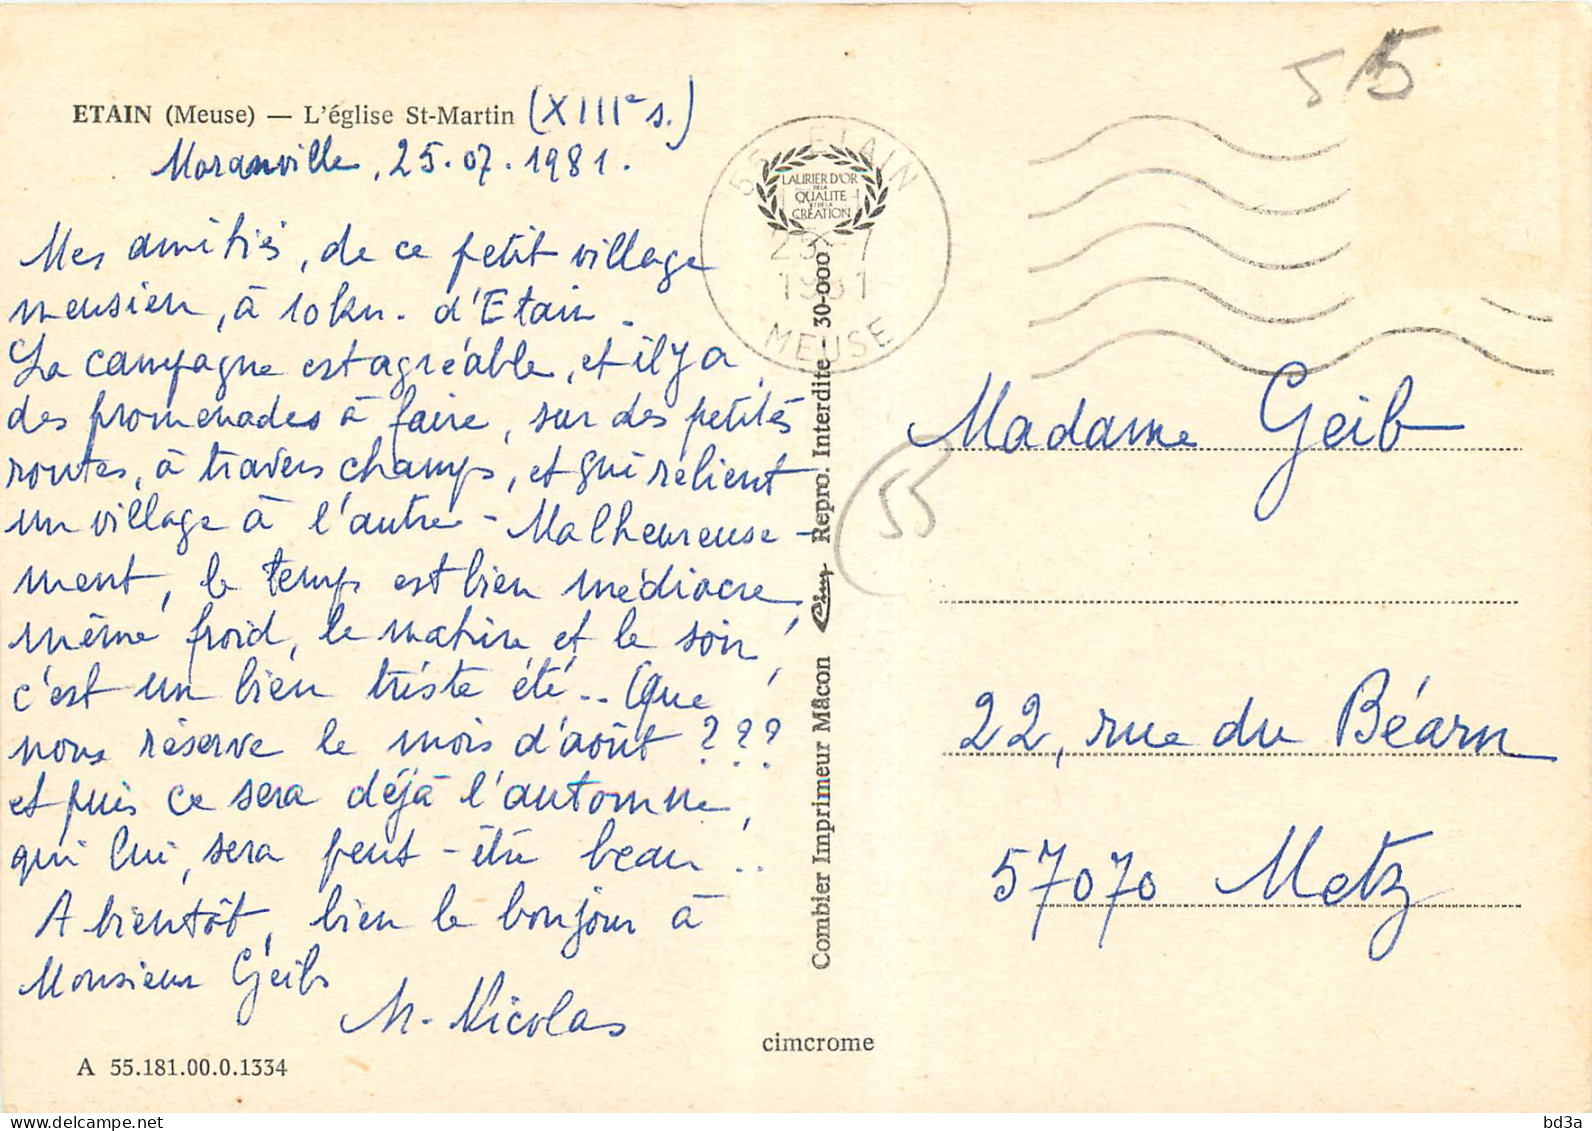 ETAIN (Meuse) — L'église St-Martin (XIIIe s.)
Moranville, 25.07.1981.
Mes amitiés, de ce petit village
meusien, à 10 km. d'Etain.
La campagne est agréable, et il y a
des promenades à faire, sur des petites
routes, à travers champs, et qui relient
un village à l'autre - Malheureuse-
ment, le temps est bien médiocre,
même froid, le matin et le soir,
c'est un bien triste été.. Que
nous réserve le mois d'août ???
et puis ce sera déjà l'automne,
qui lui, sera peut-être beau...
A bientôt, bien le bonjour à
Monsieur Geib
M. Nicolas
A 55.181.00.0.1334
55 ETAIN
25-7
1981
MEUSE
LAURIER D'OR
DE LA
QUALITE
ET DE LA
CRÉATION
Combier Imprimeur Mâcon Cim Repro. Interdite 30-000
cimcrome
55
55
Madame Geib
22, rue du Béarn
57070 Metz
bd3a